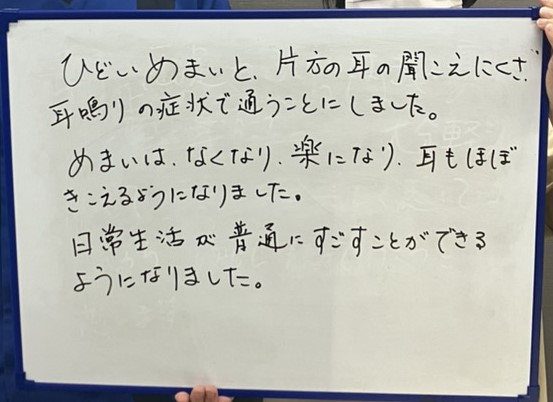 ひどいめまいと、片方の耳の聞こえにくさ、
耳鳴りの症状で通うことにしました。
めまいは、なくなり、楽になり、耳もほぼ
きこえるようになりました。
日常生活が普通にすごすことができる
ようになりました。